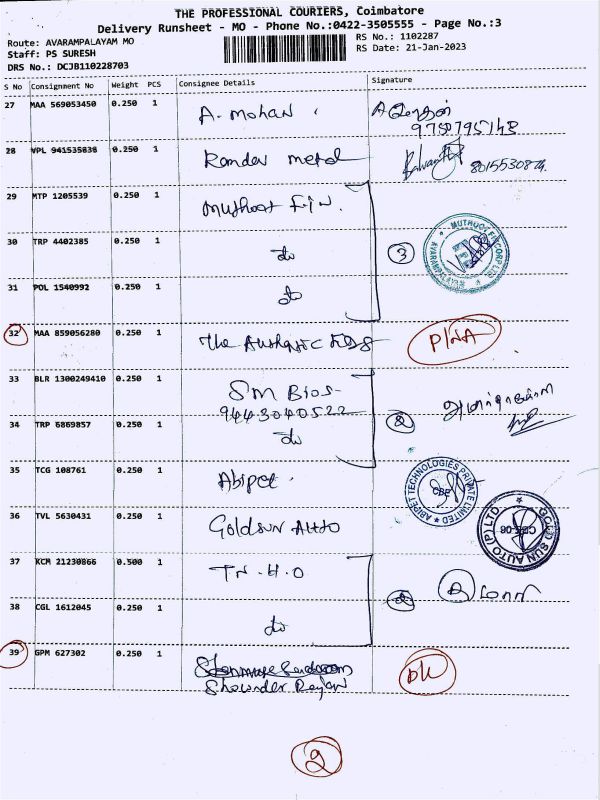 THE PROFESSIONAL COURIERS, Coimbatore
Delivery Runsheet - MO - Phone No.:0422-3505555 - Page No.:3
Route: AVARAMPALAYAM MO
Staff: PS SURESH
DRS No.: DCJB110228703
RS No.: 1102287
RS Date: 21-Jan-2023
S No Consignment No Weight PCS Consignee Details Signature
27 MAA 569053450 0.250 1 A. Mohan
9758795143
28 VPL 941535838 0.250 1 metal
29 MTP 1205539 0.250 1 Muthoot Fin.
30 TRP 4402385 0.250 1 do 3
MUTHOOT FINCORP LTD
AVARAMPALAYAM
31 POL 1540992 0.250 1 do
32 MAA 859056280 0.250 1 The P/NA
33 BLR 1300249410 0.250 1 SM Bios-
9443040522
34 TRP 6869857 0.250 1 do 2
35 TCG 108761 0.250 1 Abipet
ABIPET TECHNOLOGIES PRIVATE LIMITED
CBE
36 TVL 5630431 0.250 1 Goldsun Auto
GOLD SUN AUTO (P) LTD
37 KCM 21230866 0.500 1 TN.H.O
38 CGL 1612045 0.250 1 do 2
39 GPM 627302 0.250 1
2